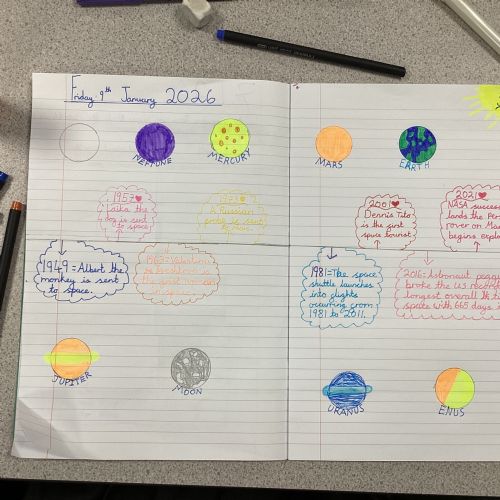 Friday 9th January 2026
NEPTUNE
MERCURY
MARS
EARTH
1957
Laika the
dog is sent
to space
1971 = ?
A Russian
probe is sent
to Mars.
2001
Dennis Tito
is the first
space tourist.
2021
NASA success
lands the Per
rover on Mars
begins explo
1949 = Albert the
monkey is sent
to space.
1963 = Valentina
is the first woman
1981 = The space
shuttle launches
into flights
occurring from
1981 to 2011.
2016 = Astronaut pegg
broke the US record
longest overall
space with 665 days
JUPITER
MOON
URANUS
ENUS